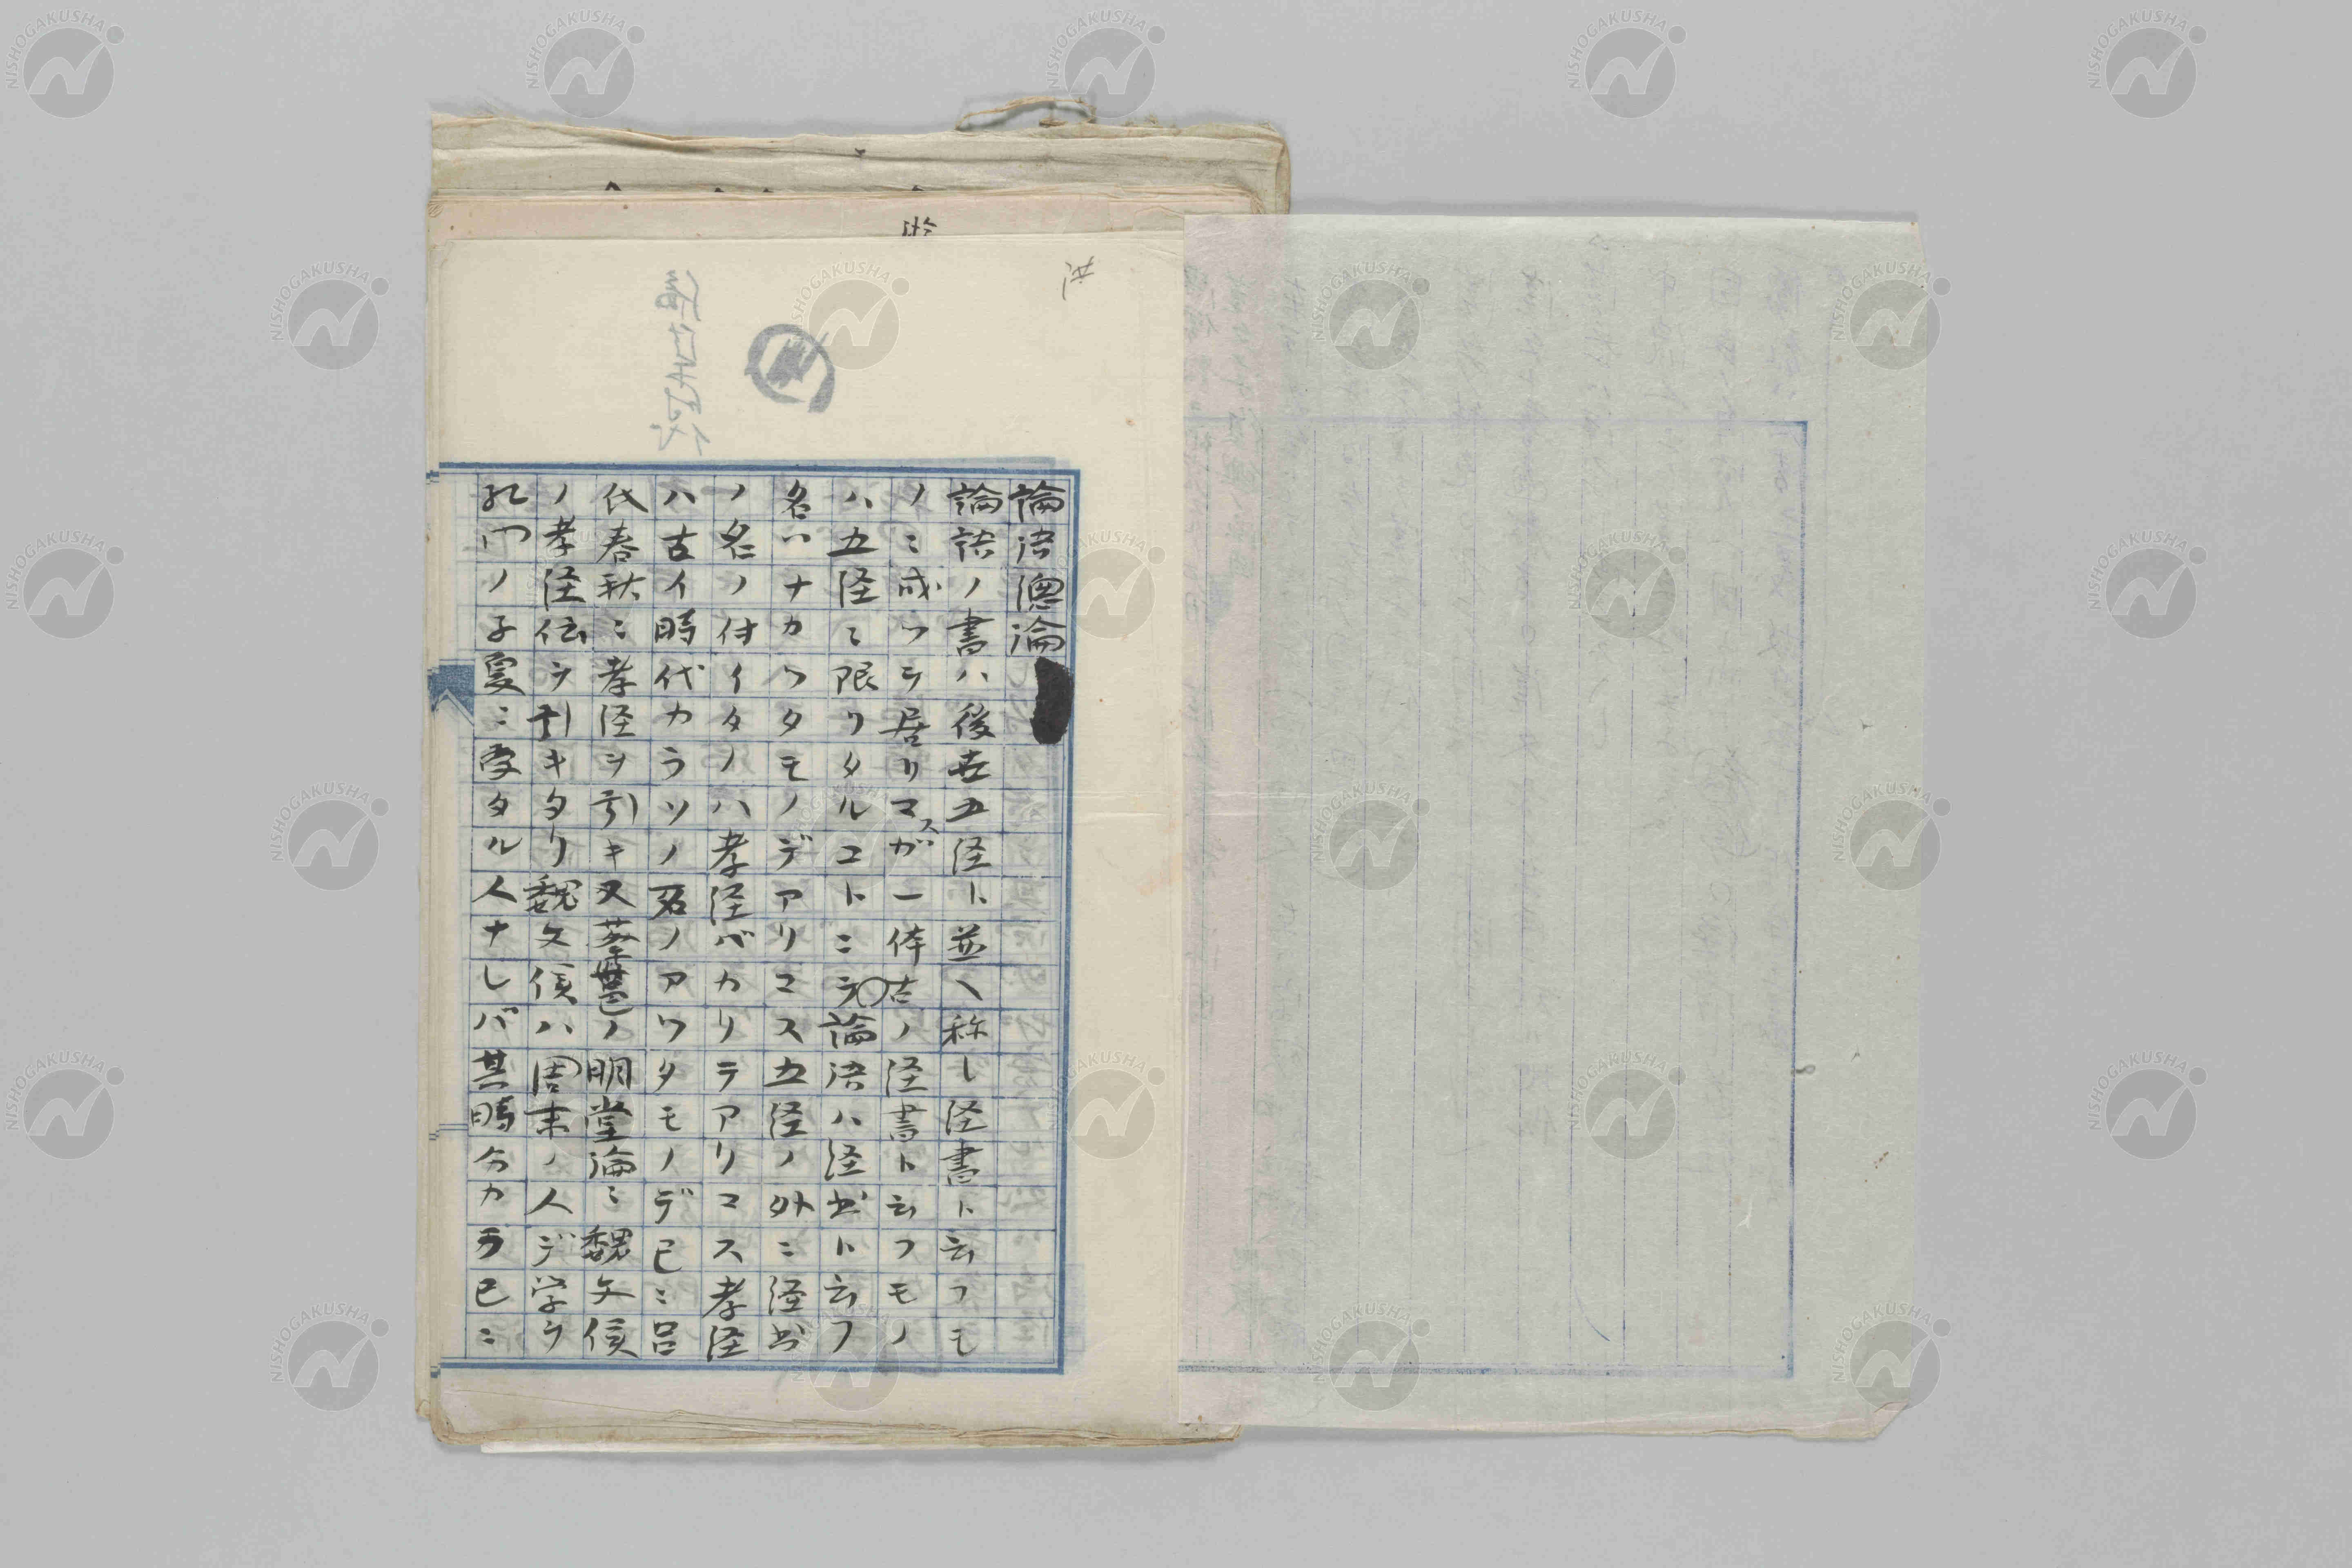 論語總論
論語ノ書ハ後世五経ト並ヘ称し経書ト云フモ
ノニ成ツテ居リマスガ一体古ノ経書ト云フモノ
ハ五経ニ限リタルコトニテ論語ハ経書ト云フ
名ハナカツタモノデアリマス五経ノ外ニ経書
ノ名ノ付イタノハ孝経バカリデアリマス孝経
ハ古イ時代カラソノ名ノアツタモノデ已ニ呂
氏春秋ニ孝経ヲ引キ又蔡邕ノ明堂論ニ魏文侯
ノ孝経伝ヲ引キタリ魏文侯ハ周末ノ人デ学ヲ
孔門ノ子夏ニ受タル人ナレバ其時分カラ已ニ
NISHOGAKUSHA